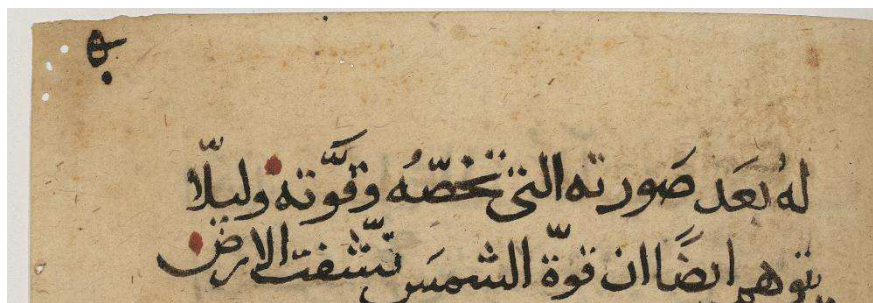 لهُ بعَد صَورته التى تخصّهُ وقوَّته وليلّا
يتوهم ايضًا ان قوّة الشمسَ نشّفت الارض